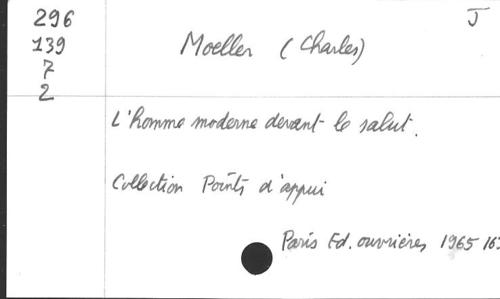 296
139
7
2
J
Moeller (Charles)
L'homme moderne devant le salut.
Collection Points d'appui
Paris Ed. ouvrières 1965